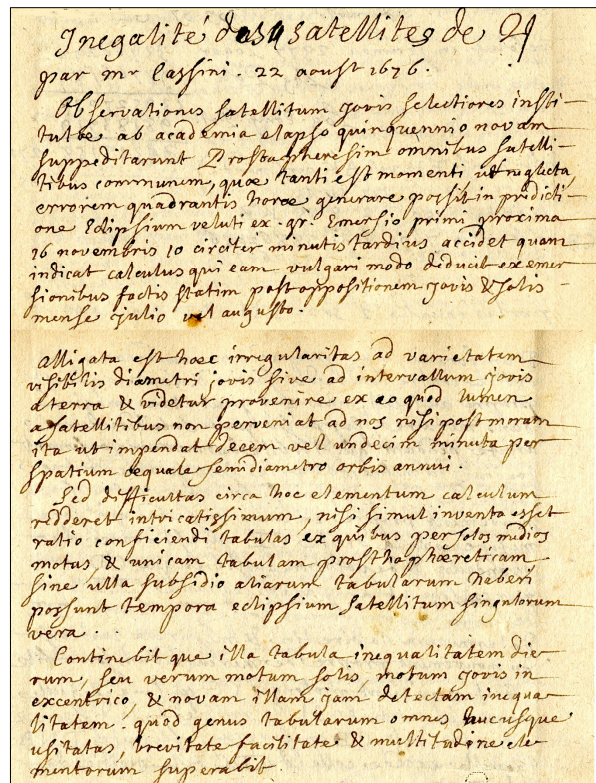 Inegalité des 4 satellites de ♃
par mr Cassini. 22 aoust 1676.
Observationes satellitum jovis selectiores insti-
tutæ ab academia elapso quinquennio novam
suppeditarunt Prostapheresim omnibus satelli-
tibus communem, quæ tanti est momenti ut neglecta
errorem quadrantis horæ generare possit in prædicti-
one Eclipsium veluti ex. gr. Emersio primi proxima
16 novembris 10 circiter minutis tardius accidet quam
indicat calculus qui eam vulgari modo deducit ex emer
sionibus factis statim post oppositionem jovis & solis
mense julio vel augusto.
alligata est hæc irregularitas ad varietatem
visibilis diametri jovis sive ad intervallum jovis
a terra & videtur provenire ex eo quod lumen
a satellitibus non perveniat ad nos nisi post moram
ita ut impendat decem vel undecim minuta per
spatium æquale semidiametro orbis annui.
Sed difficultas circa hoc elementum calculum
redderet intricatissimum, nisi simul inventa esset
ratio conficiendi tabulas ex quibus per solos medios
motus, & unicam tabulam prosthaphæreticam
sine ulla subsidio aliarum tabularum haberi
possunt tempora eclipsium satellitum singulorum
vera.
Continebit que illa tabula inequalitatem die
rum, seu verum motum solis, motum jovis in
excentrico, & novam illam jam detectam inequa
litatem quod genus tabularum omnes hucusque
usitatas, brevitate facilitate & multitudine ele
mentorum superabit